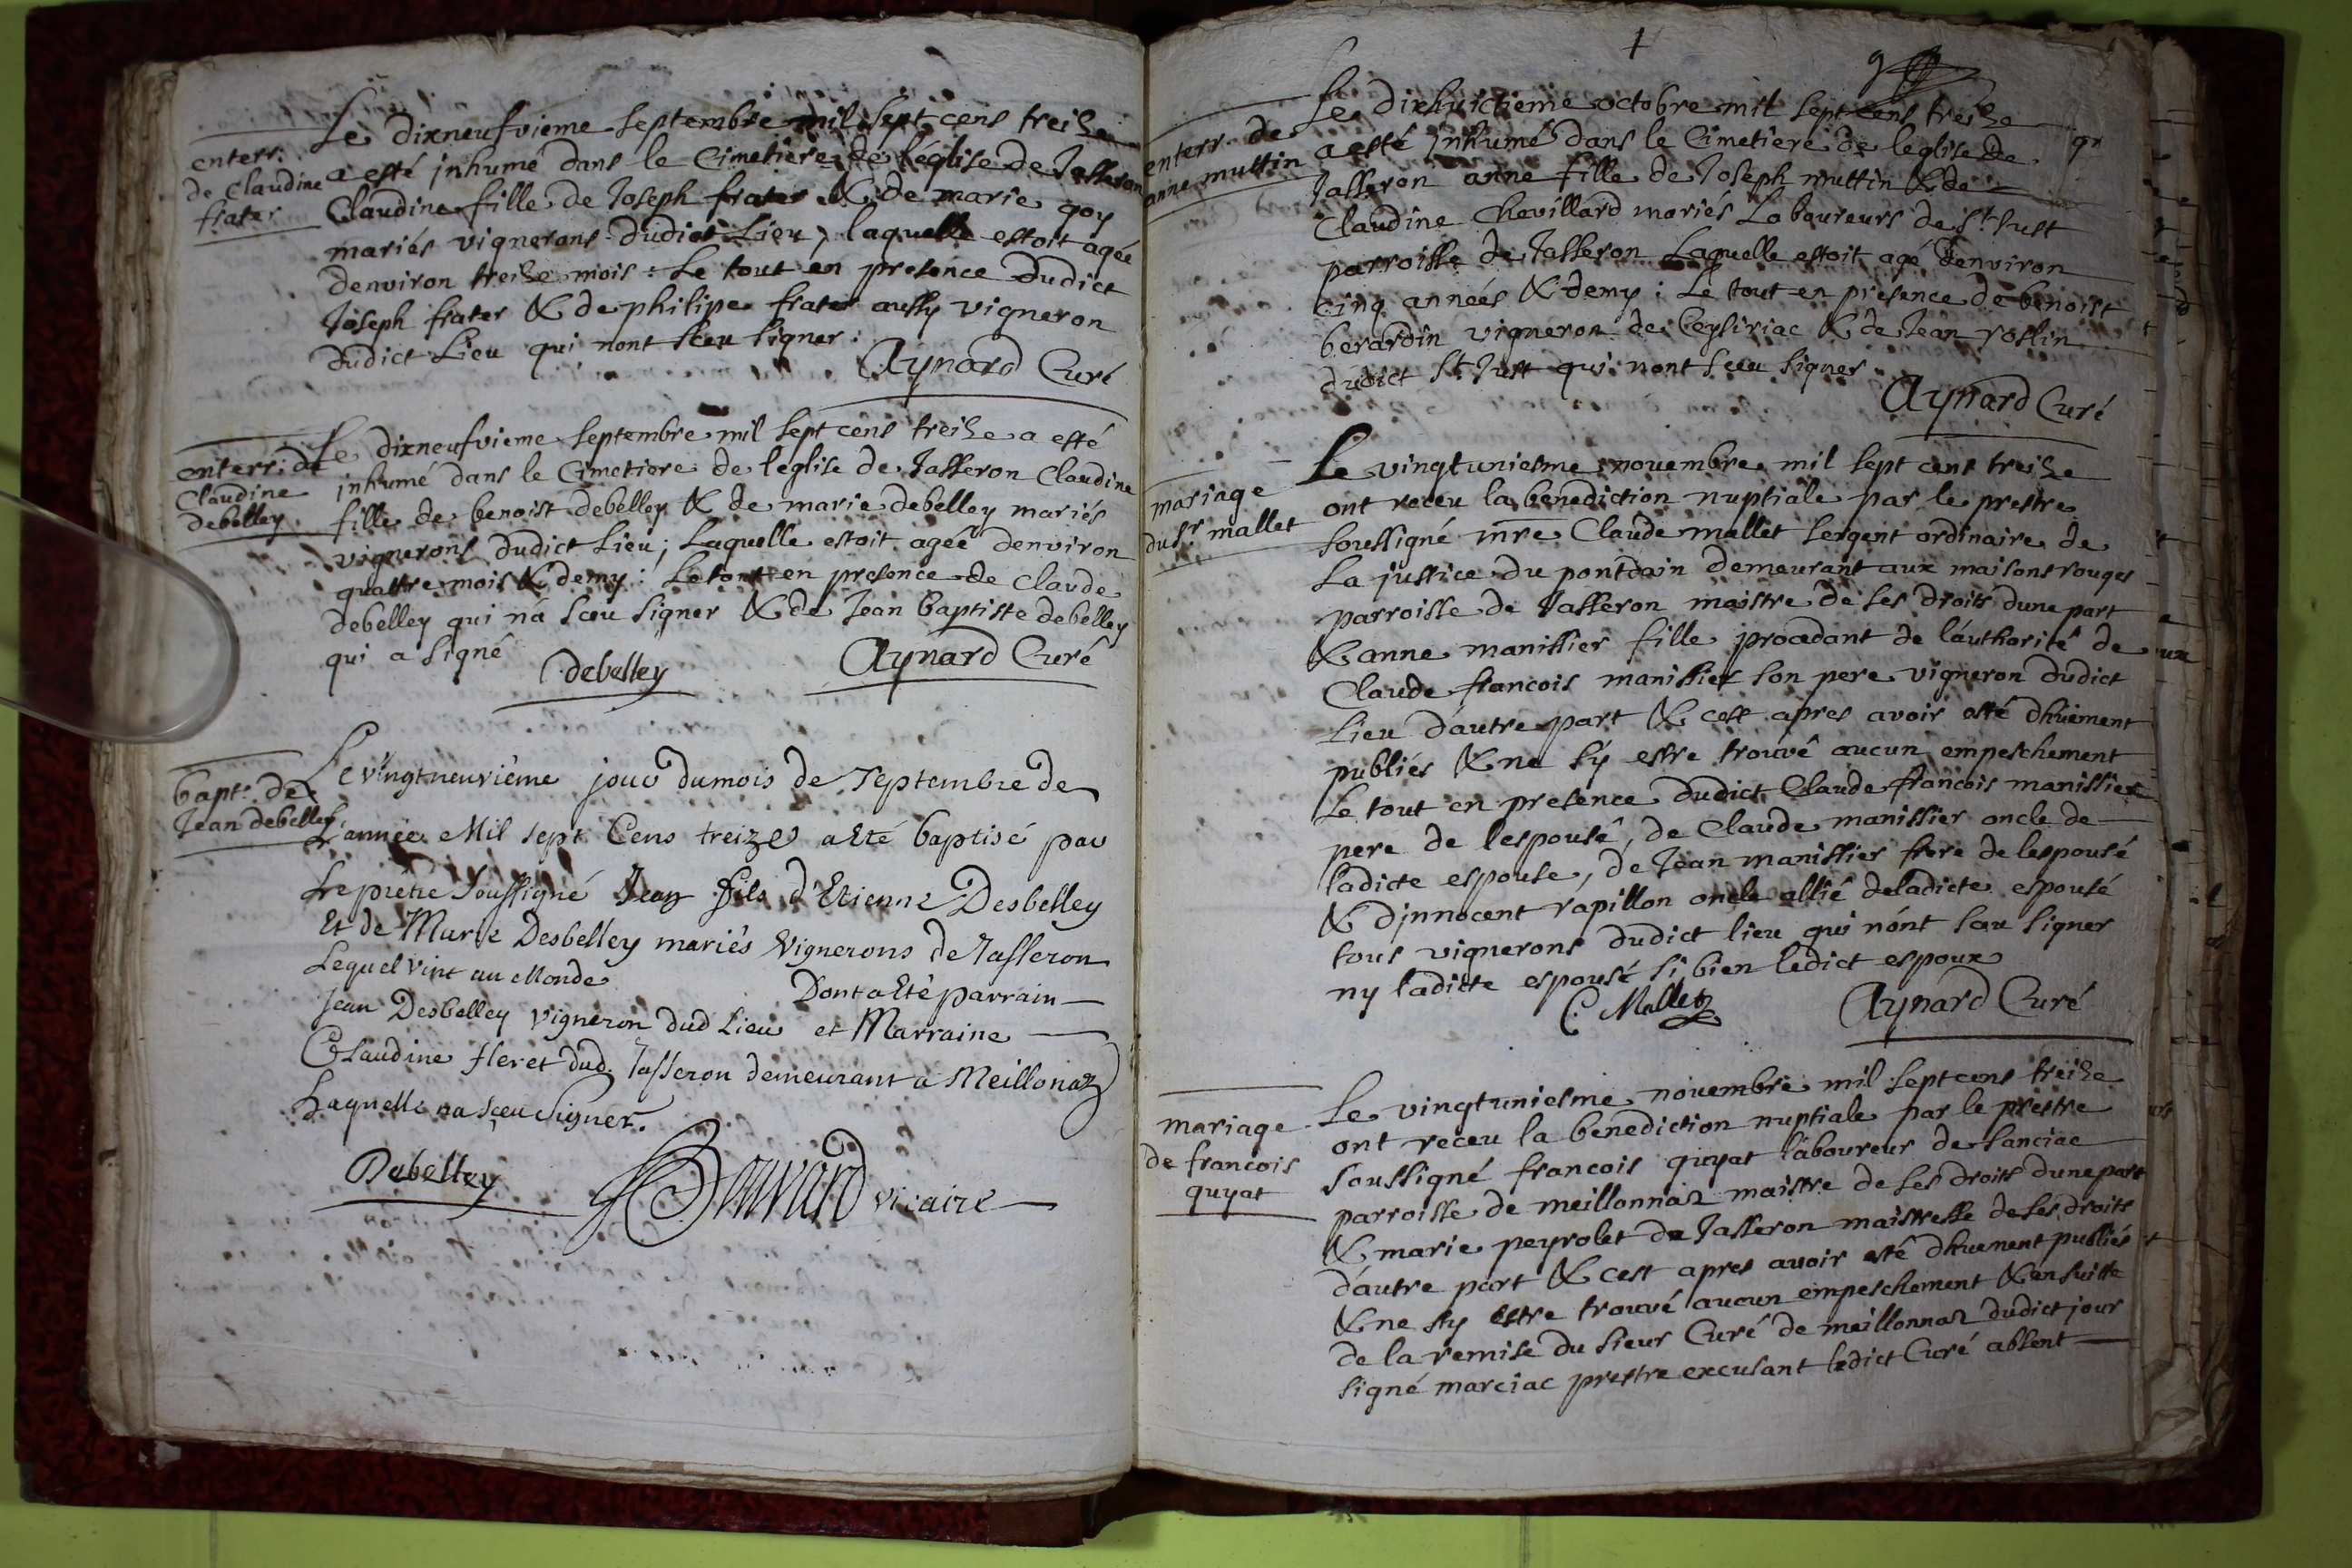 enterr.
de Claudine
frater
Le dixneufvieme septembre mil sept cens treize
a esté inhumé dans le Cimetiere de l'église de Jasseron
Claudine fille de Joseph frater & de marie goy
mariés vignerons dudict Lieu, laquelle estoit agée
denviron treize mois : Le tout en presence dudict
Joseph frater & de philipe frater aussy vigneron
dudict Lieu qui nont sceu signer.
Aynard Curé
enterr. de
Claudine
debelley
Le dixneufvieme septembre mil sept cens treize a esté
inhumé dans le Cimetiere de leglise de Jasseron Claudine
fille de benoist debelley & de marie debelley mariés
vignerons dudict Lieu; Laquelle estoit agée denviron
quattre mois & demy : Le tout en presence de Claude
debelley qui na sceu signer & de Jean baptiste debelley
qui a signé
debelley Aynard Curé
bapt. de
Jean debelley
Le vingtneuvième jour du mois de Septembre de
L'année Mil sept Cens treize a Eté baptisé par
Le prêtre soussigné Jean fils d'Etienne Desbelley
Et de Marie Desbelley mariés Vignerons de Jasseron
Lequel vint au Monde Dont a Eté parrain
Jean Desbelley Vigneron dud Lieu et Marraine
Claudine fleret dud. Jasseron demeurant a Meillonaz
Laquelle na sceu Signer.
Debelley vicaire
enterr. de
anne muttin
Le dixhuictieme octobre mil sept cens treize
a esté inhumé dans le Cimetiere de leglise de
Jasseron anne fille de Joseph muttin & de
Claudine Chevillard mariés Laboureurs de St Just
parroisse de Jasseron Laquelle estoit agé denviron
cinq années & demy : Le tout en presence de benoist
berardin vigneron de Ceysiriac & de Jean roslin
dudict St Just qui nont sceu signer
Aynard Curé
mariage
du Sr mallet
Le vingtuniesme novembre mil sept cens treize
ont receu la benediction nuptiale par le prestre
soussigné mre Claude mallet sergent ordinaire de
La justice du pontdain demeurant aux maisons rouges
parroisse de Jasseron maistre de ses droits dune part
& anne manissier fille procedant de láuthorité de
Claude francois manissier son pere vigneron dudict
Lieu dáutre part & cest apres avoir esté dhüement
publiés & ne sy estre trouvé aucun empeschement
Le tout en presence dudict Claude francois manissier
pere de lespousé, de Claude manissier oncle de
ladicte espouse, de Jean manissier frere de lespousé
& djnnocent rapillon oncle allié deladicte espousé
tous vignerons dudict lieu qui nónt sceu signer
ny ladicte espousé si bien ledict espoux
C. Mallet Aynard Curé
mariage
de francois
quyat
Le vingtuniesme novembre mil septcens treize
ont receu la benediction nuptiale par le prestre
soussigné francois quyat laboureur de sanciac
parroisse de meillonnaz maistre de ses droits dune part
& marie peyrolet de Jasseron maistresse de ses droits
dáutre part & cest apres avoir esté dhuement publiés
& ne sy estre trouvé aucun empeschement & en suitte
de la remise du sieur Curé de meillonnaz dudict jour
signé marciac prestre excusant ledict Curé absent